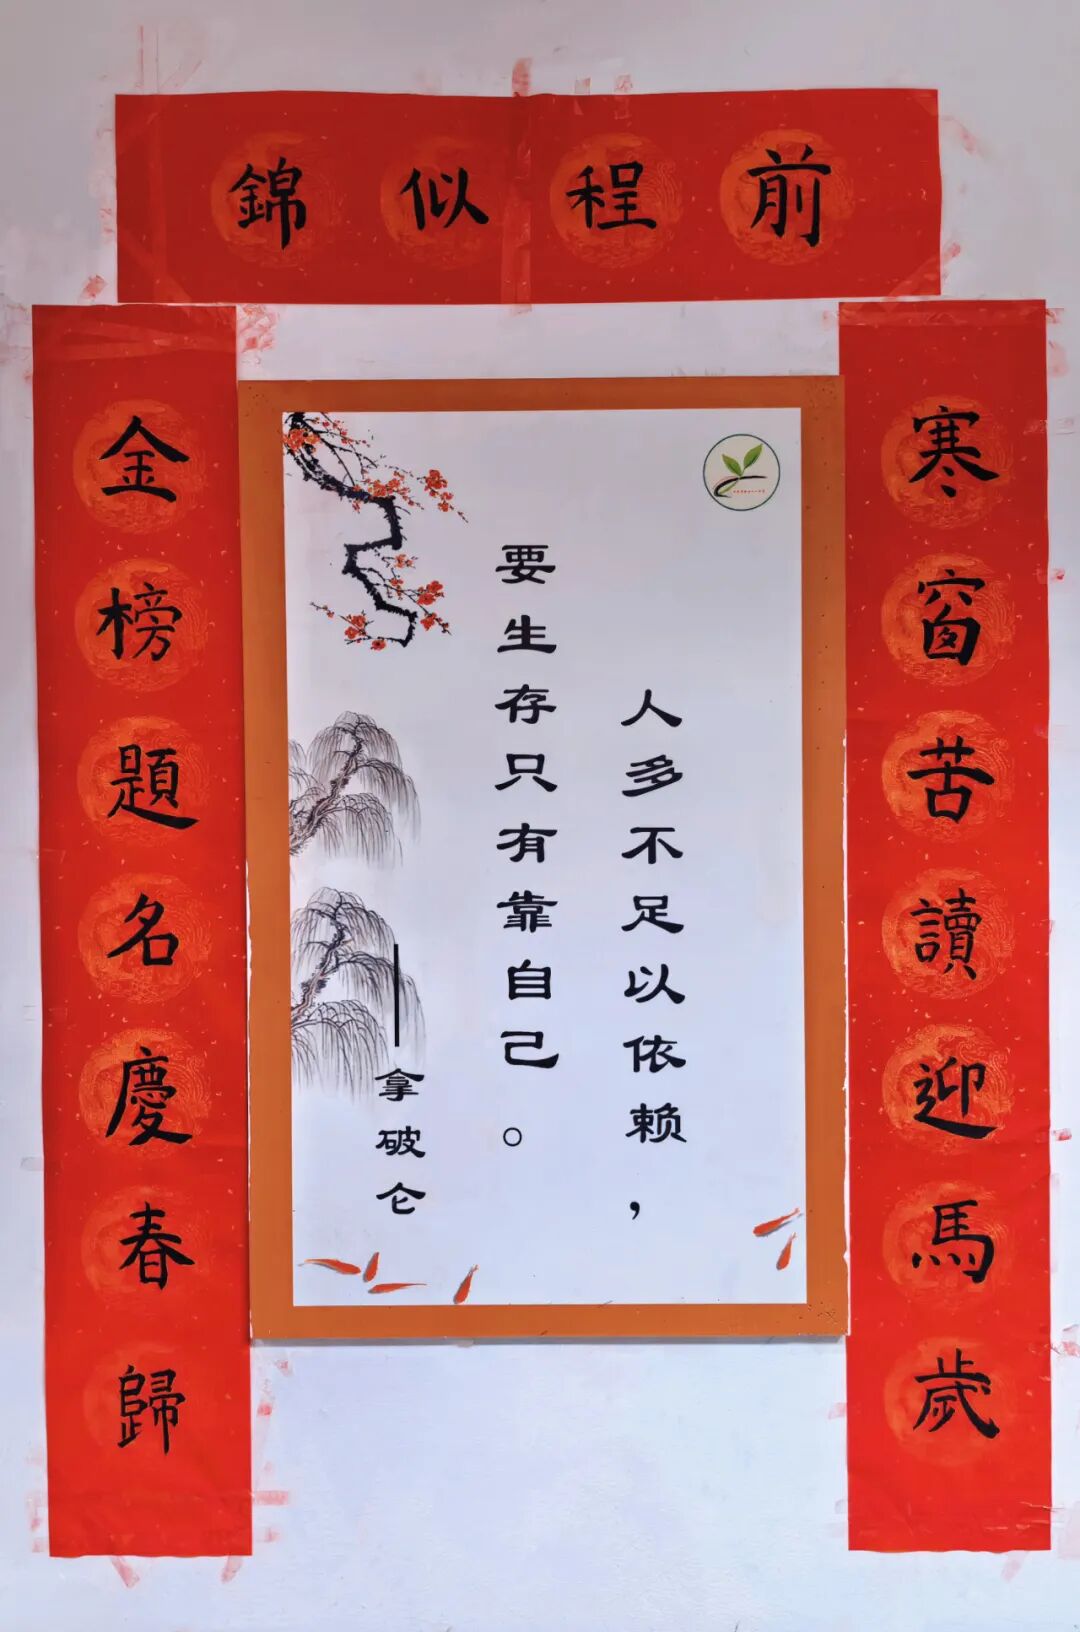 前程似錦
寒窗苦讀迎馬歲
金榜題名慶春歸
人多不足以依赖，
要生存只有靠自己。
——拿破仑